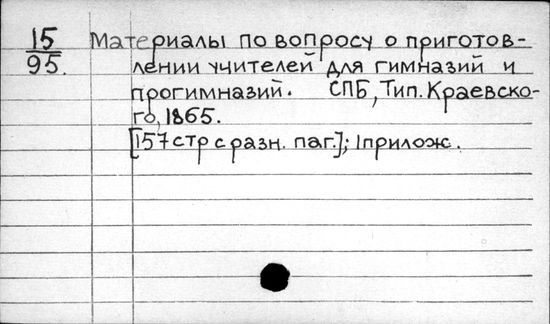 15 Материалы по вопросу о приготов-
95. лении учителей для гимназий и
прогимназий. СПБ, Тип. Краевско-
го, 1865.
[157 стр с разн. паг.]; 1 прилож.